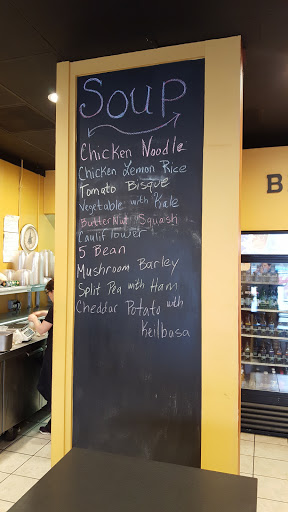 Soup
Chicken Noodle
Chicken Lemon Rice
Tomato Bisque
Vegetable with Kale
Butter Nut Squash
Cauliflower
5 Bean
Mushroom Barley
Split Pea with Ham
Cheddar Potato with
Keilbasa
B